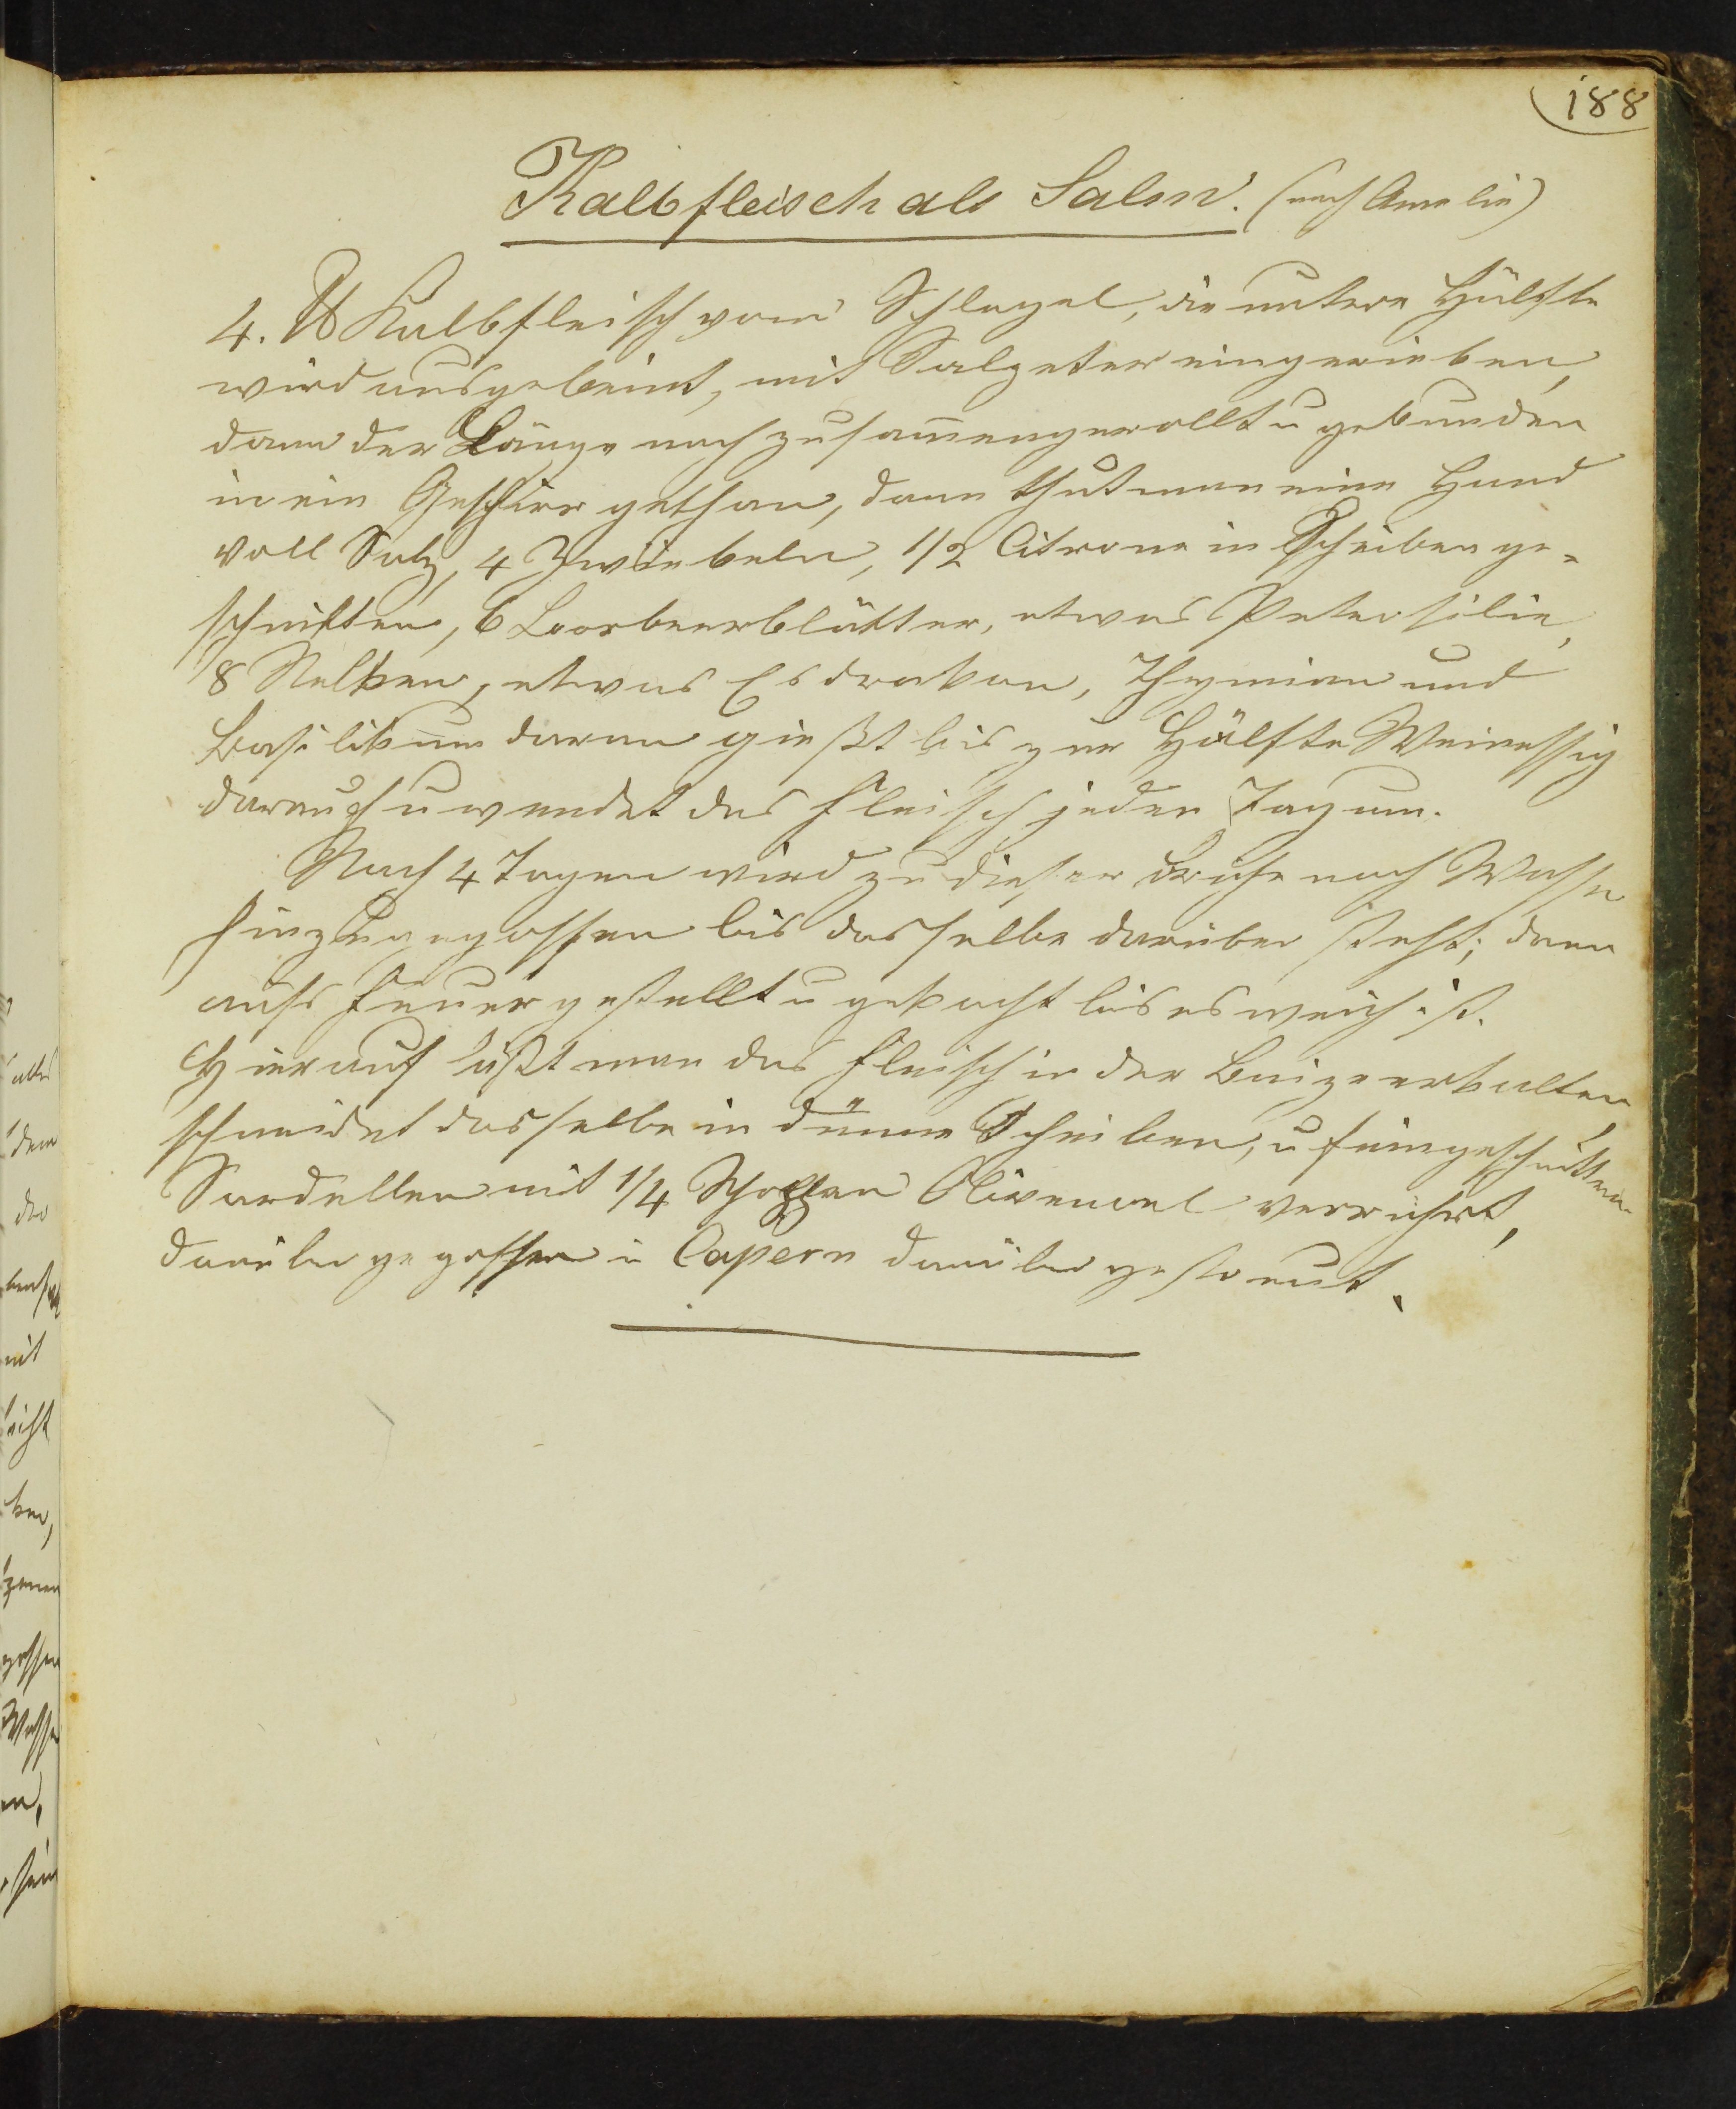 188
Kalbfleisch als Salm. (nach Amelie)
4. ℔ Kalbfleisch vom Schlegel, die untere Hälfte
wird ausgebeint, mit Salpeter eingerieben,
dann der Länge nach zusam̄engerollt u gebunden
in ein Geschirr gethan, dann thut man eine Hand
voll Salz, 4 Zwiebeln, 1/2 Citrone in Scheiben ge-
schnitten, 6 Loorbeerblätter, etwas Petersilie,
8 Nelken, etwas Esdrakon, Thymian und
Basilikum daran gießt bis zur Hälfte Weinessig
darauf u wendet das Fleisch jeden Tag um.
Nach 4 Tagen wird zu dieser Brühe noch Wasser
hinzugegossen bis dasselbe darüber steht; dann
aufs Feuer gestellt u gekocht bis es weich ist.
Hierauf läßt man das Fleisch in der Baize erkalten,
schneidet dasselbe in dünne Scheiben, u feingeschnittene
Sardellen mit 1/4 Schoppen Olivenoel verrührt,
darüber gegossen u Capern darüber gestreut.